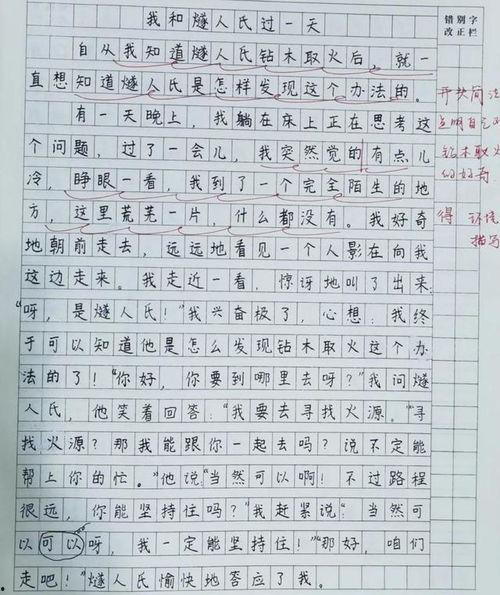 我和燧人氏过一天
错别字
改正栏
自从我知道燧人氏钻木取火后，就一
直想知道燧人氏是怎样发现这个办法的。
有一天晚上，我躺在床上正在思考这
个问题，过了一会儿，我突然觉的有点儿
冷，睁眼一看，我到了一个完全陌生的地
方，这里荒芜一片，什么都没有。我好奇
地朝前走去，远远地看见一个人影在向我
这边走来。我走近一看，惊讶地叫了出来
“呀，是燧人氏！”我兴奋极了，心想：我终
于可以知道他是怎么发现钻木取火这个办
法的了！“你好，你要到哪里去呀？”我问燧
人氏，他笑着回答：“我要去寻找火源。”“寻
找火源？那我能跟你一起去吗？说不定能
帮上你的忙。”他说：“当然可以啊！不过路程
很远，你能坚持住吗？”我赶紧说：“当然可
以可以呀，我一定能坚持住！”“那好，咱们
走吧！”燧人氏愉快地答应了我。
开头简洁
点明自己对
钻木取火
的好奇
得 环境
描写